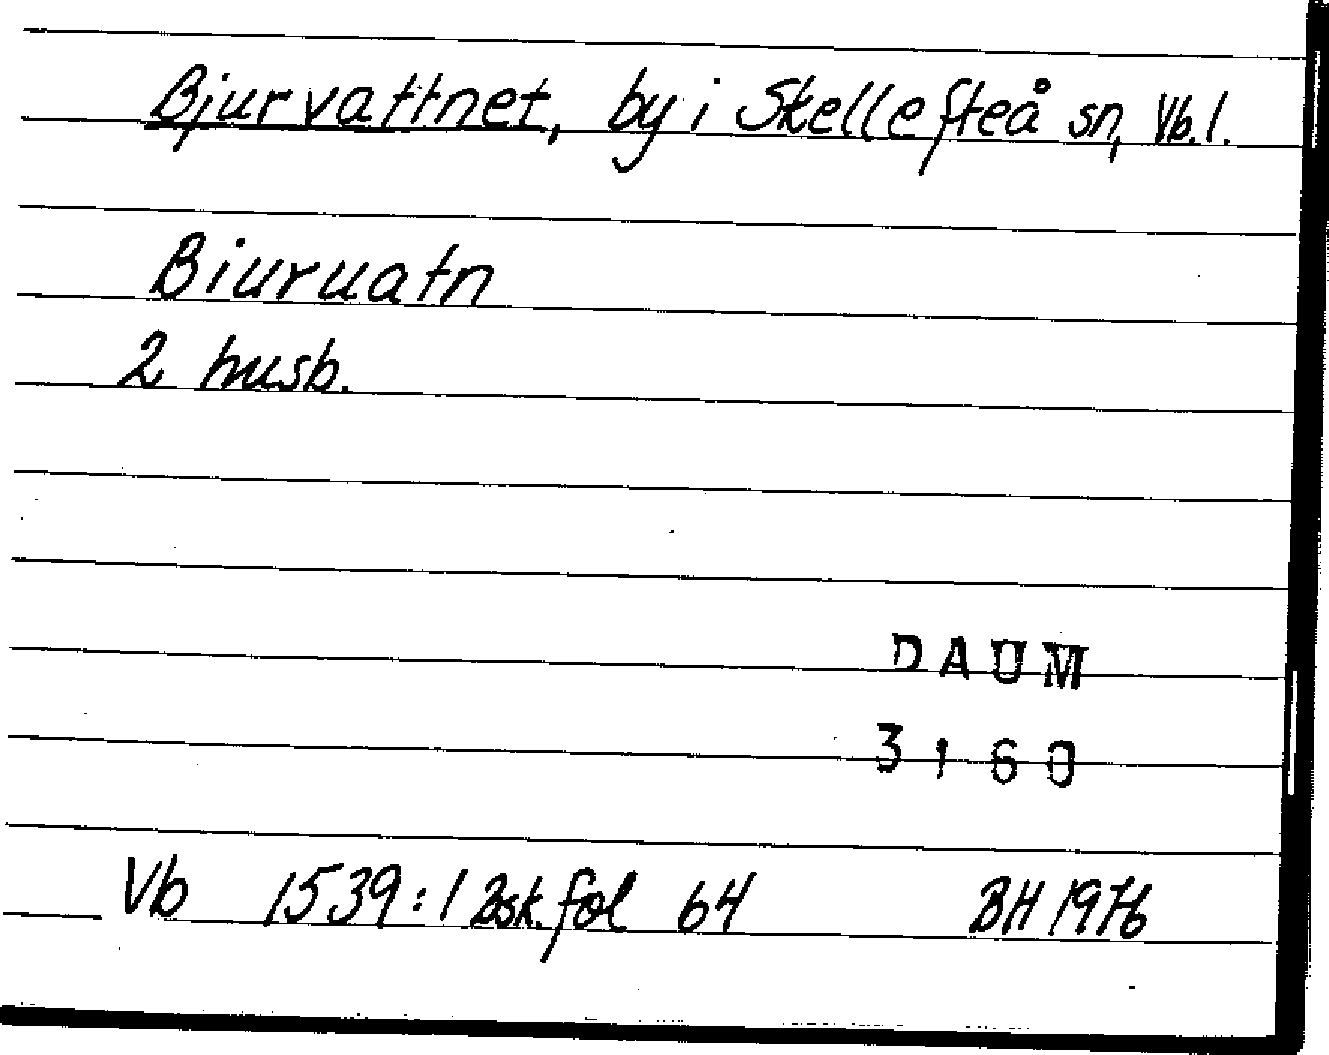 Bjurvattnet, by i Skellefteå sn, Vb.l.
Biuruatn
2 husb.
DAUM
3160
Vb 1539:1 Bsk. fol 64 BH 1976